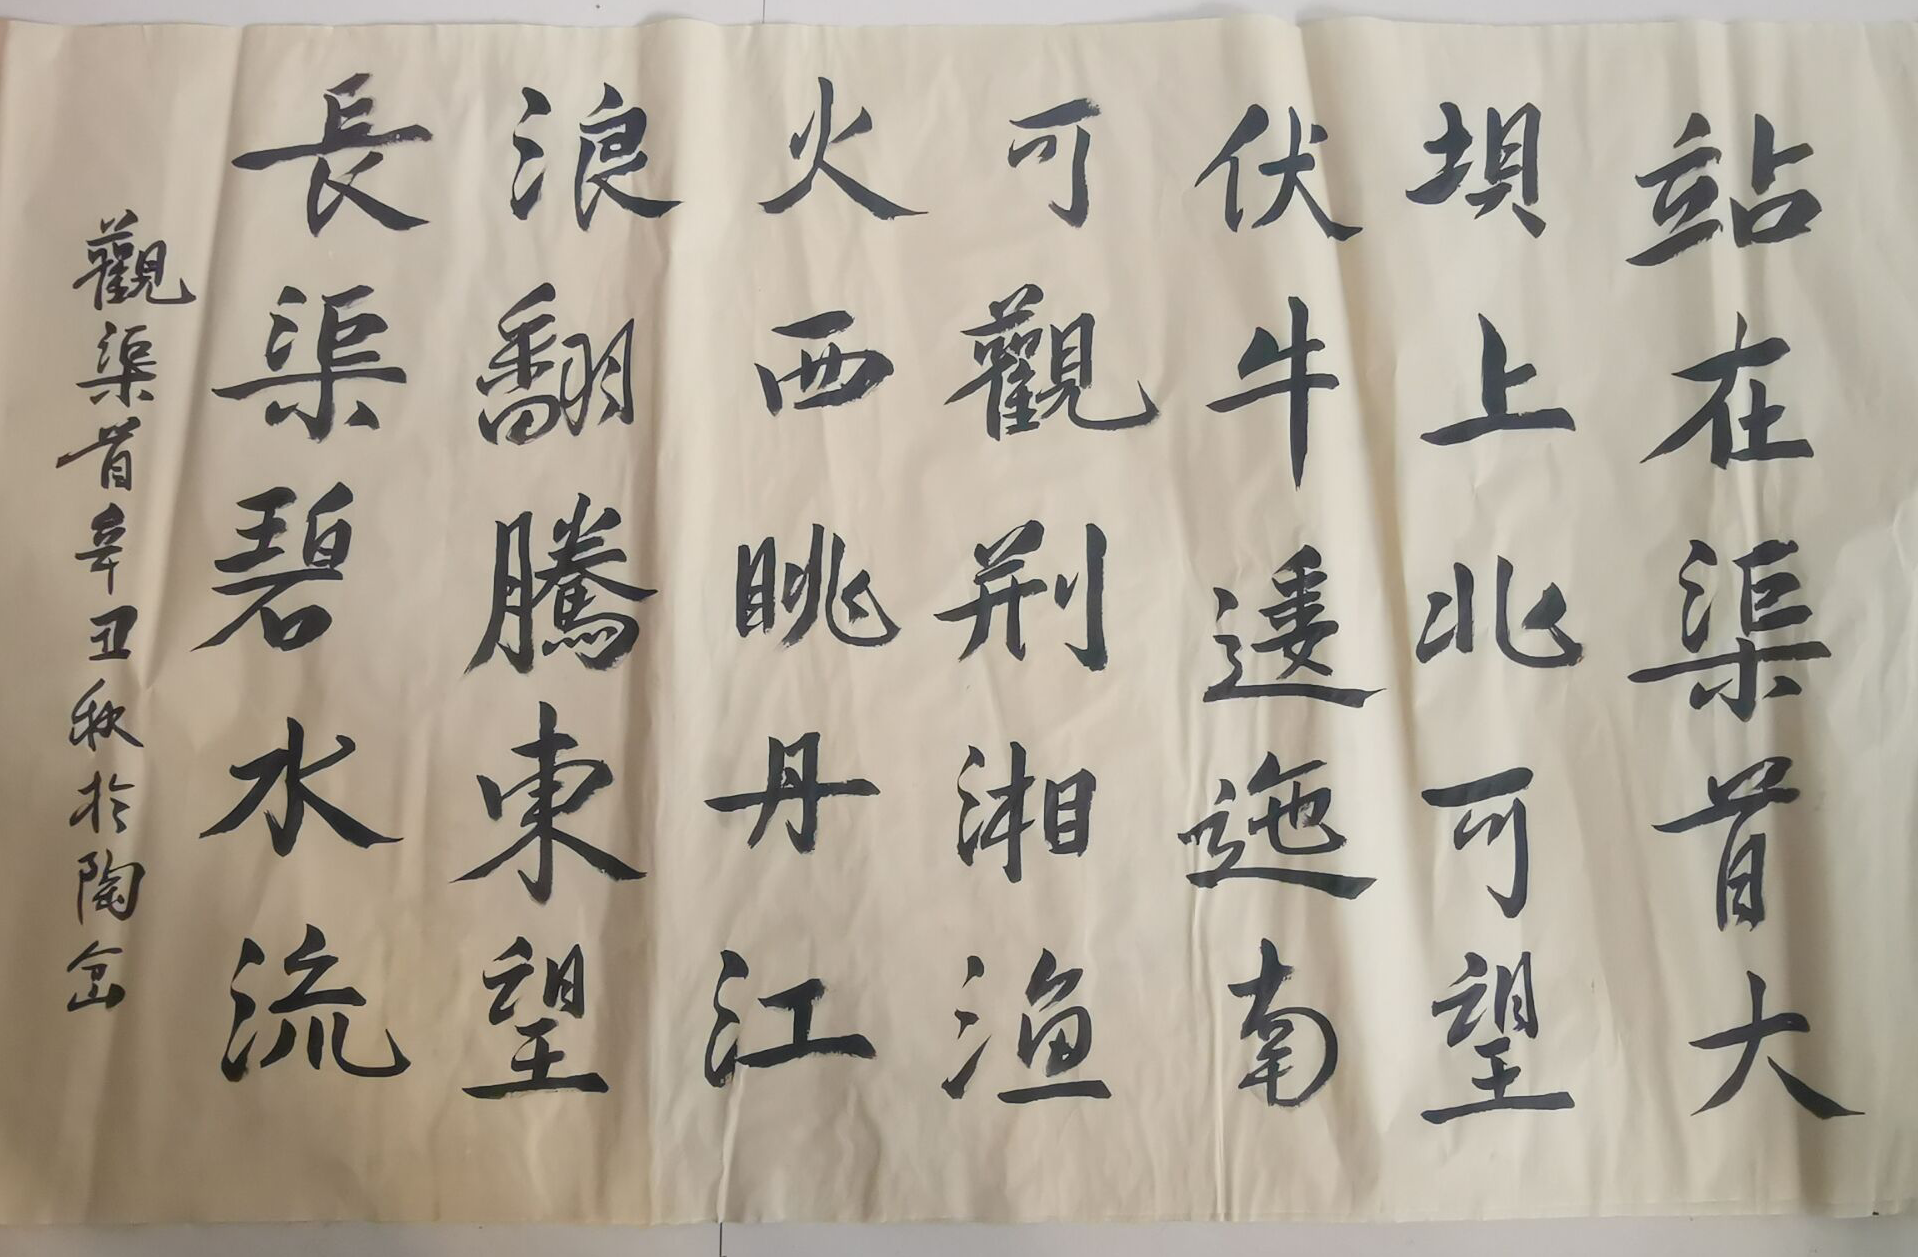 站在渠首大
坝上北可望
伏牛逶迤南
可觀荆湘渔
火西眺丹江
浪翻騰東望
長渠碧水流
觀渠首辛丑秋於陶岔